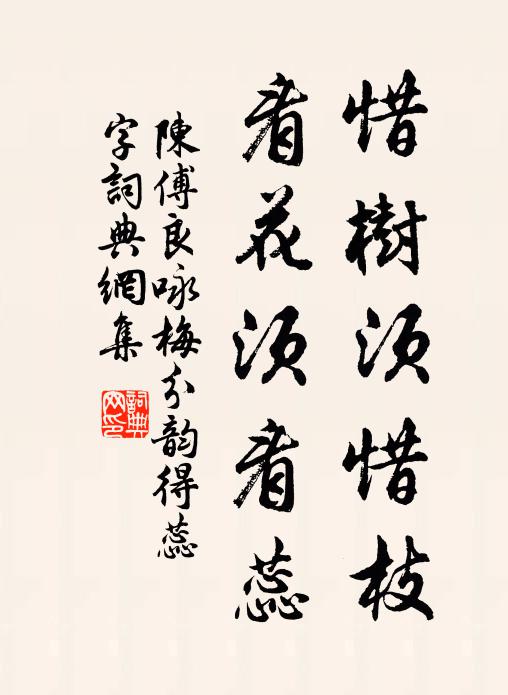 惜樹須惜枝
看花須看蕊
陳傅良咏梅分韵得蕊
字詞典網集
詞典
网印